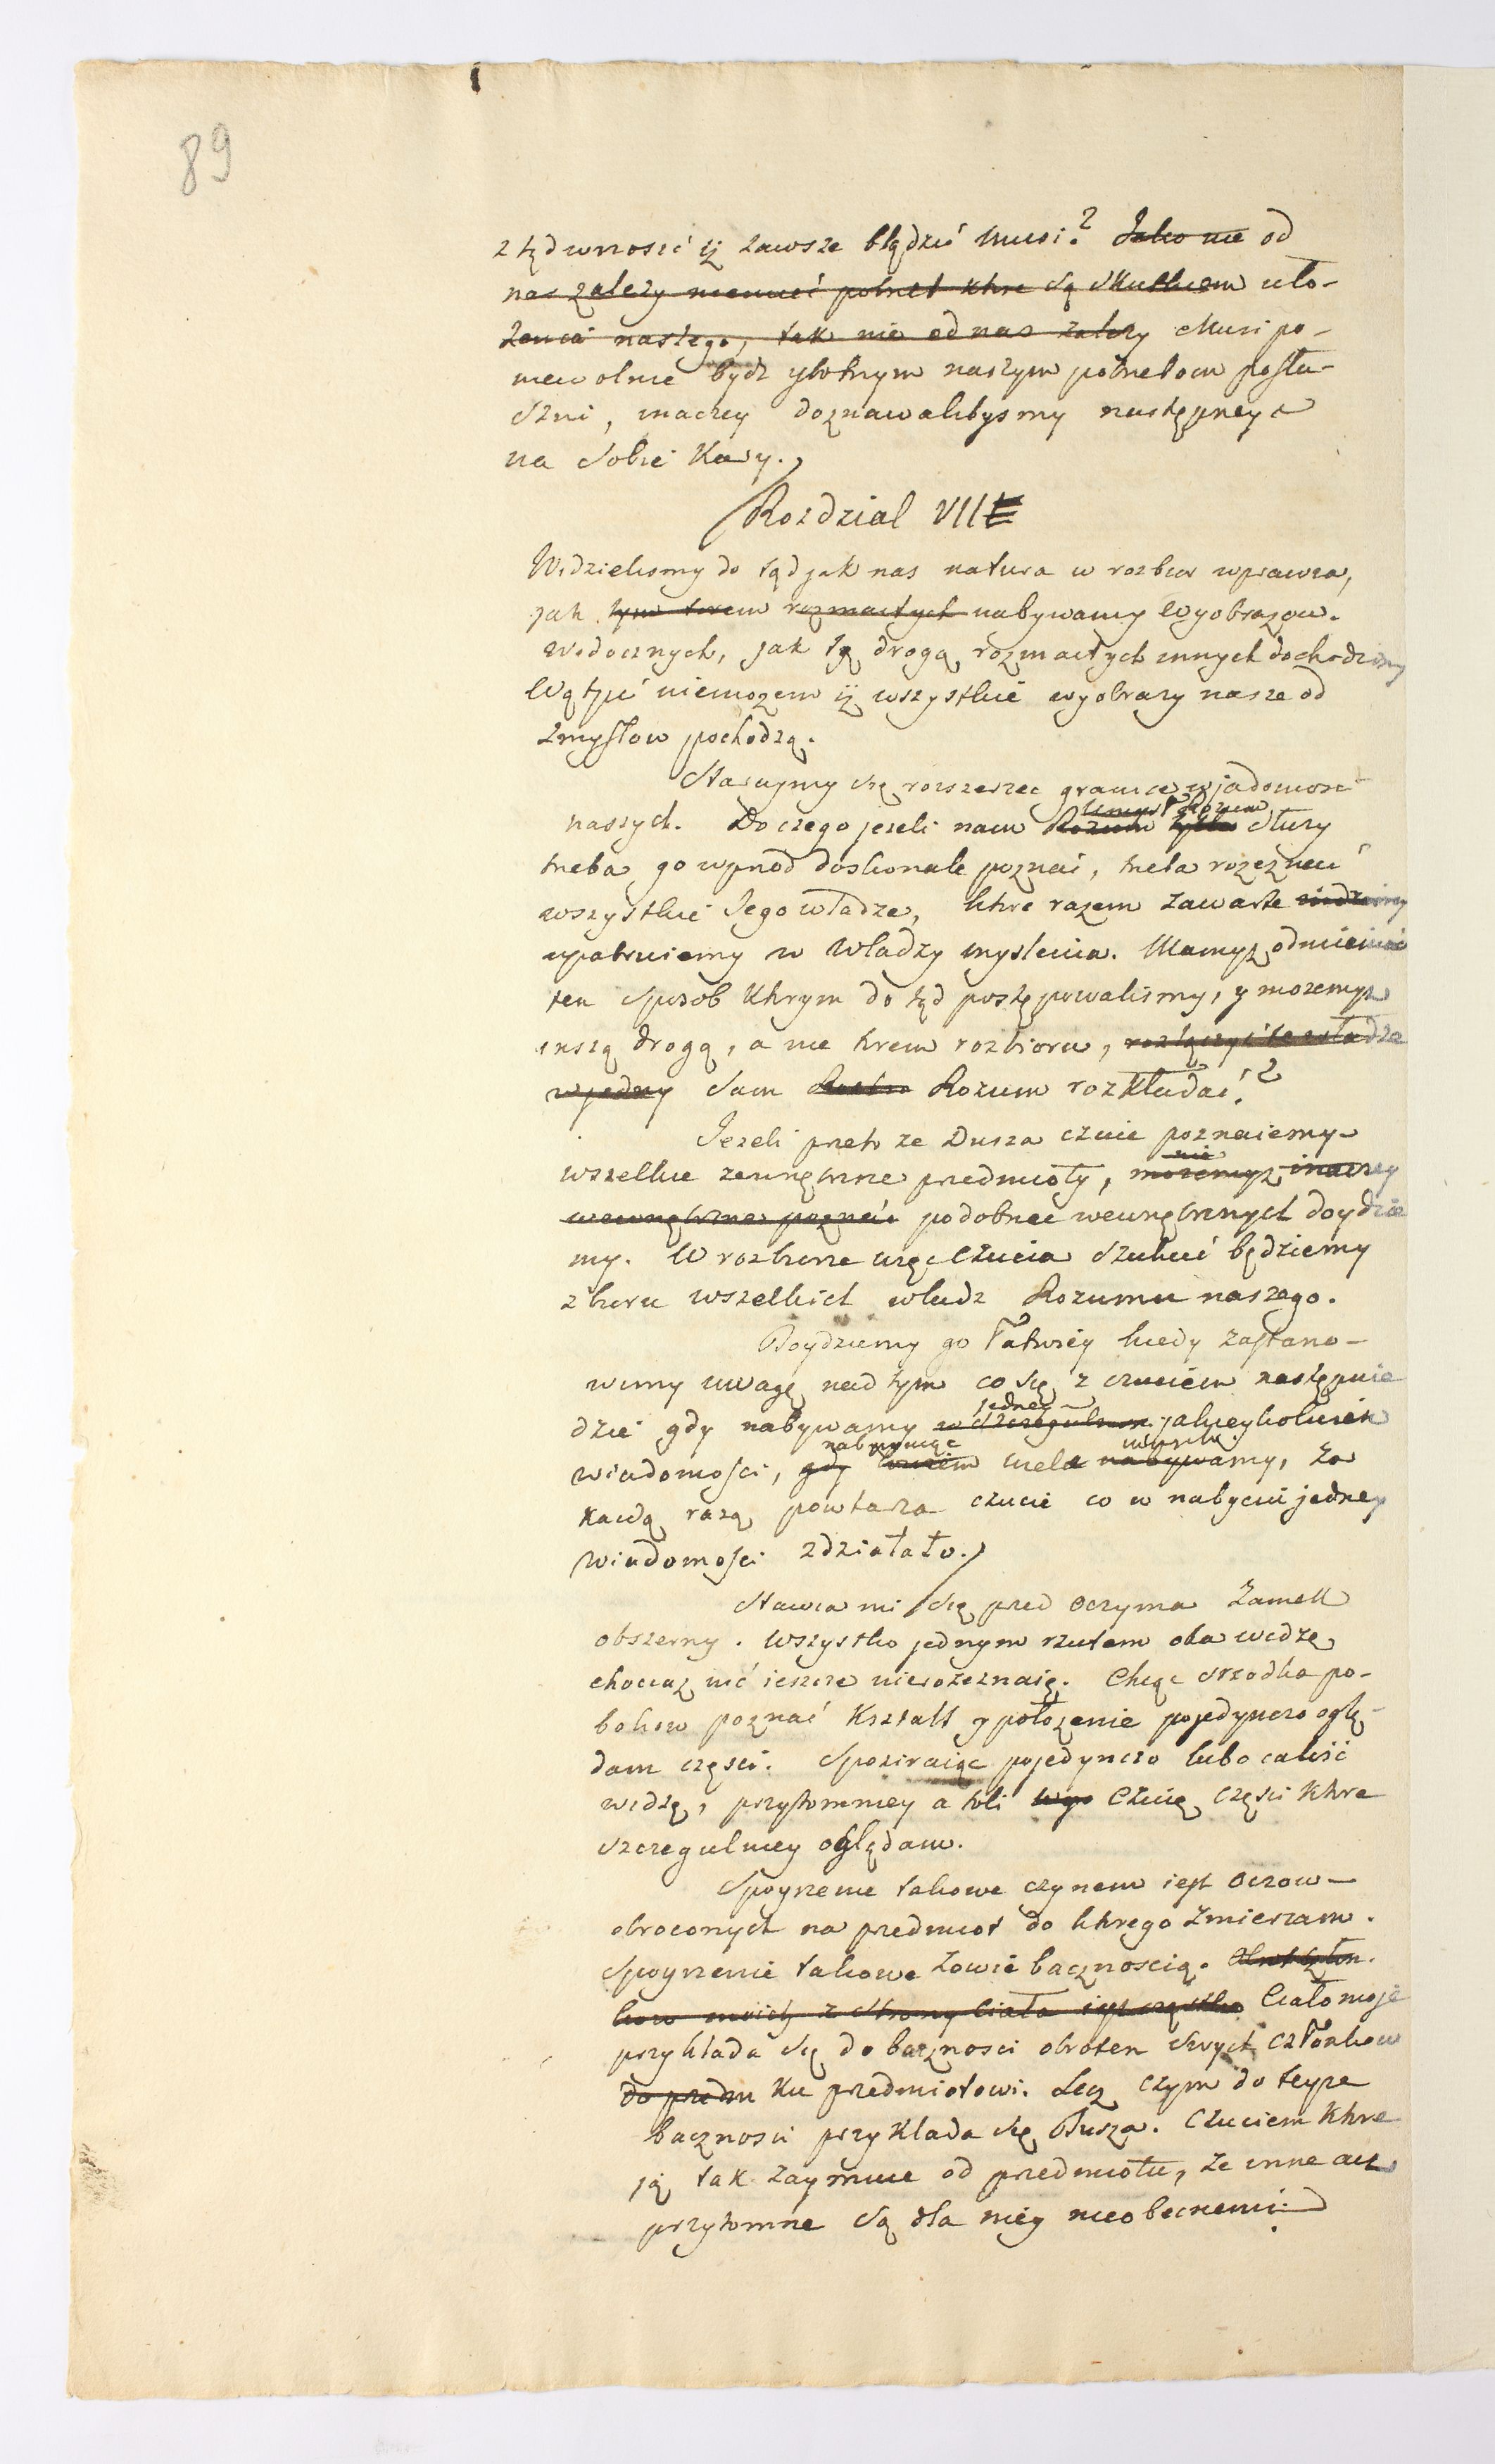 89
z tąd wnosić iż zawsze błądzić musi? Jako nie od
nas zależy niemieć potrzeb które są skutkiem uło-
żenia naszego, tak nie od nas zależy Musi po-
niewolnie bydź istotnym naszym potrzebom posłu-
szni, inaczey doznawalibysmy następney
na sobie kary.
Rozdzial VII
Widzielismy do tąd jak nas natura w rozbior wprawia,
jak tym torem rozmaitych nabywamy wyobrazow.
widocznych, jak tą drogą rozmaitych innych dochodzimy
Wątpić niemozem iż wszystkie wyobrazy nasze od
zmysłow pochodzą.
Starajmy się rozszerzec granice wiadomosci
naszych. Do czego jezeli nam Rozum tylko umysł Rozum służy
trzeba go wprzod doskonale poznać, trzeba rozeznać
wszystkie Jego władze, które razem zawarte widziemy
upatruiemy w władzy myslenia. Mamyż odmienić
ten sposob którym do tąd postępowalismy, y mozemyż
inszą drogą, a nie torem rozbioru, rozłączyć te władze
w jedny sam Rozum rozkładać?
Jezeli przeto ze Dusza czuie poznaiemy
wszelkie zewnętrzne przedmioty, możemyż nie inaczey
wewnętrzne poznać podobnie wewnętrznych doydzie
my. W rozbiorze więc czucia szukać będziemy
zbioru wszelkich władz Rozumu naszego.
Doydziemy go łatwiey kiedy zastano-
wimy uwagę nad tym co się z czuciem następnie
dzie gdy nabywamy w szczegulnosci jedney jakieykolwiek
wiadomości, gdy nabywaiąc wiela nabywamy, za
kazdą razą powtarza czucie co w nabyciu jedney
wiadomości zdziałało.
Stawia mi się przed oczyma zamek
obszerny. Wszystko jednym rzutem oka widzę,
chociaz nic ieszcze nierozeznaię. Chcąc srzodka po-
bokow poznać kształt y położenie pojedynczo oglę-
dam części. Spoziraiąc pojedynczo lubo całość
widzę, przytomniey a toli czuię części które
szczegulniey oglądam.
Spoyrzenie takowe czynem iest oczow
obroconych na przedmiot do którego zmierzam.
Spoyrzenie takowe zowie bacznością. Obrot człon-
kow moich z strony ciała iest cząstką Ciało moje
przykłada się do baczności obrotem swych członkow
do przedm ku przedmiotowi. Lecz czym do teyze
baczności przykłada się Dusza. Czuciem które
ją tak zaymuie od przedmiotu, ze inne acz
przytomne są dla niey nieobecnemi